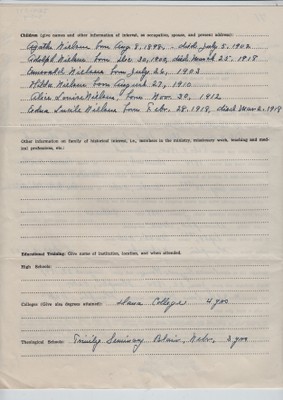 Children (give names and other information of interest, as occupation, spouses, and present address):
Agathe Nielsen born Aug 8, 1898, - died July 5, 1902
Adolph Nielsen born Dec. 30, 1900, died March 25, 1918
Emerald Nielsen born July 26, 1903
Hilda Nielsen born August 27, 1910
Alice Louise Nielsen, born Nov. 30, 1912
Edna Lucile Nielsen, born Febr. 28, 1918, died Mar 2, 1918
Other information on family of historical interest, i.e., members in the ministry, missionary work, teaching and medical professions, etc.:
Educational Training. Give name of institution, location, and when attended.
High Schools:
Colleges (Give also degrees attained): Dana College 4 yrs
Theological Schools: Trinity Seminary Blair, Nebr. 3 yrs